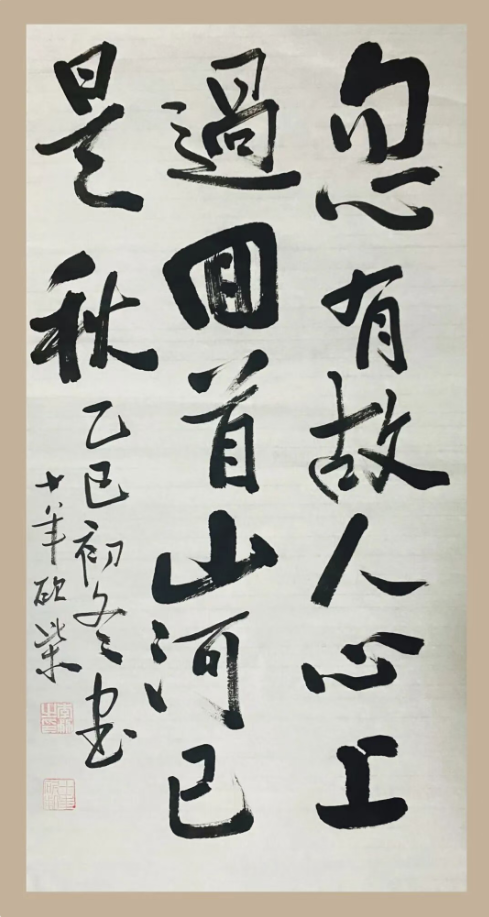 忽有故人心上
過回首山河已
是秋
乙巳初冬书
十年砍柴